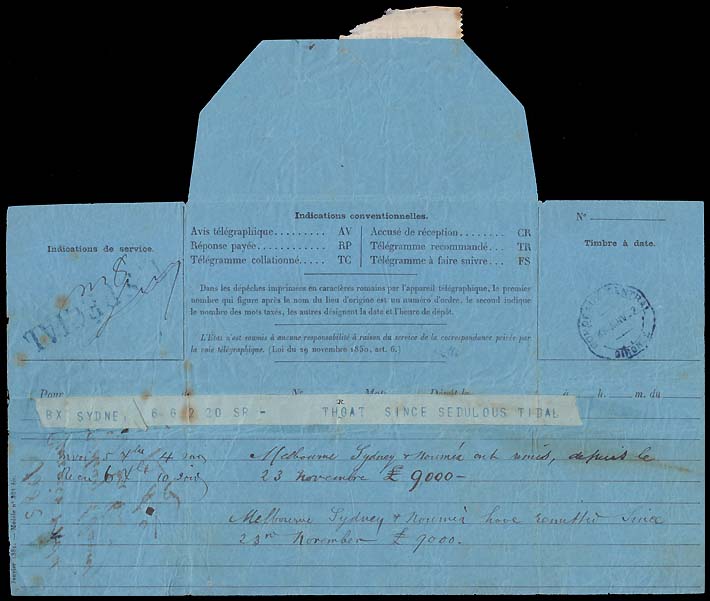 Indications conventionnelles.
Avis télégraphique......... AV
Réponse payée............ RP
Télégramme collationné..... TC
Accusé de réception........ CR
Télégramme recommandé... TR
Télégramme à faire suivre... FS
Dans les dépêches imprimées en caractères romains par l'appareil télégraphique, le premier
nombre qui figure après le nom du lieu d'origine est un numéro d'ordre, le second indique
le nombre des mots taxés, les autres désignent la date et l'heure de dépôt.
L'État n'est soumis à aucune responsabilité à raison du service de la correspondance privée par
la voie télégraphique. (Loi du 29 novembre 1850, art. 6.)
Indications de service.
SPECIAL
N°
Timbre à date.
CENTRAL
Pour de N° Mots Dépôt le à h. m. du
BX SYDNE 6 6 2 20 SR - THOAT SINCE SEDULOUS TIBAL
R
Melbourne Sydney & Nouméa ont remis, depuis le
23 Novembre £ 9000 -
Melbourne Sydney & Nouméa have remitted since
23rd November £ 9000.